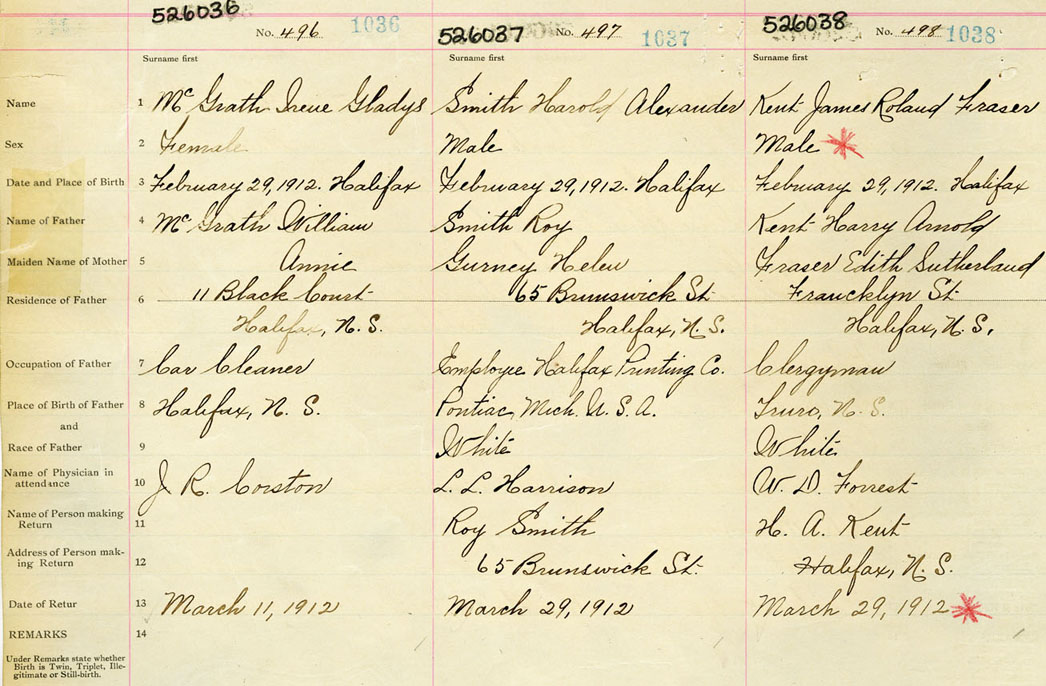 526036 526037 526038
No. 496 1036 No. 497 1037 No. 498 1038
Surname first Surname first Surname first
Name 1 McGrath Irene Gladys Smith Harold Alexander Kent James Roland Fraser
Sex 2 Female Male Male
Date and Place of Birth 3 February 29, 1912. Halifax February 29, 1912. Halifax February 29, 1912. Halifax
Name of Father 4 McGrath William Smith Roy Kent Harry Arnold
Maiden Name of Mother 5 Annie Gurney Helen Fraser Edith Sutherland
Residence of Father 6 11 Black Court 65 Brunswick St. Francklyn St
Halifax, N. S. Halifax, N. S. Halifax, N. S.
Occupation of Father 7 Car Cleaner Employee Halifax Printing Co. Clergyman
Place of Birth of Father 8 Halifax, N. S. Pontiac, Mich. U. S. A. Truro, N. S.
and
Race of Father 9 White White
Name of Physician in
attendance 10 J. R. Corston L. L. Harrison W. D. Forrest
Name of Person making
Return 11 Roy Smith H. A. Kent
Address of Person mak-
ing Return 12 65 Brunswick St. Halifax, N. S.
Date of Retur 13 March 11, 1912 March 29, 1912 March 29, 1912
REMARKS 14
Under Remarks state whether
Birth is Twin, Triplet, Ille-
gitimate or Still-birth.